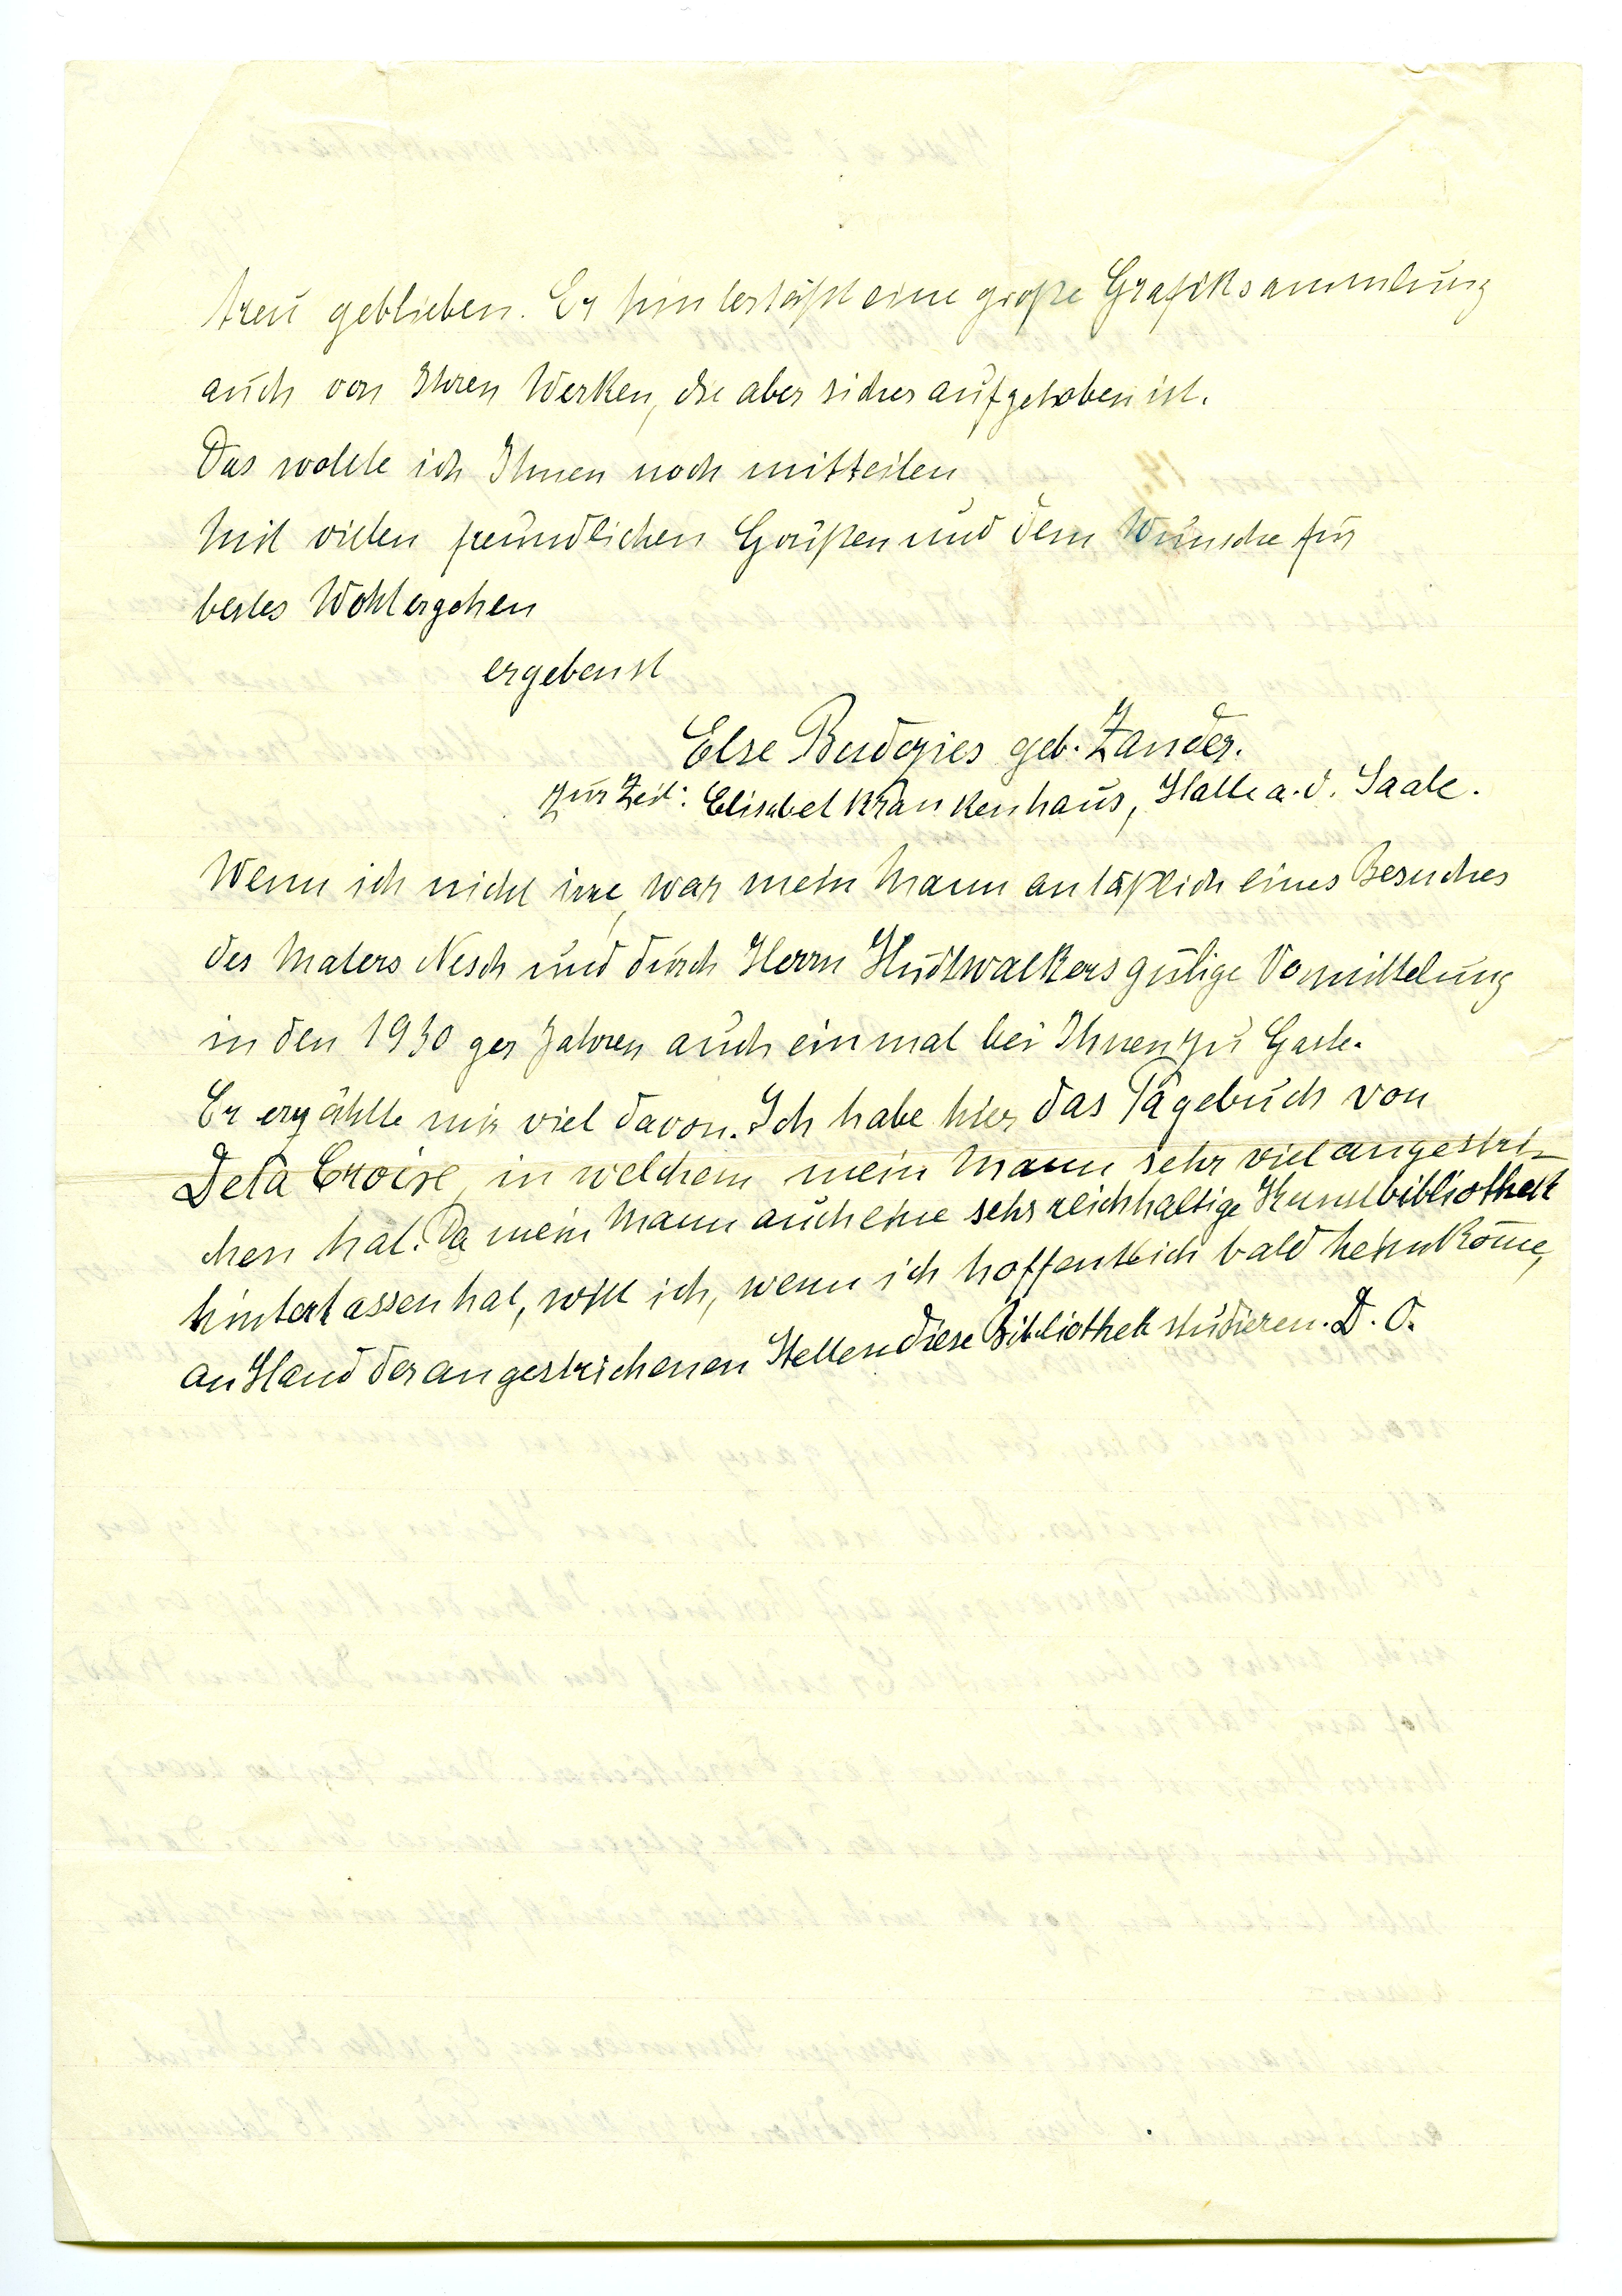 treu geblieben. Er hinterläßt eine große Grafiksammlung
auch von Ihren Werken, die aber sicher aufgehoben ist.
Das wollte ich Ihnen noch mitteilen
Mit vielen freundlichen Grüßen und dem Wunsche für
bestes Wohlergehen
ergebenst
Else Budczies geb. Zander.
zur Zeit: Elisabet Krankenhaus, Halle a. d. Saale.
Wenn ich nicht irre, war mein Mann anläßlich eines Besuches
des Malers Nesch und durch Herrn Hudtwalkers gütige Vermittelung
in den 1930 ger Jahren auch einmal bei Ihnen zu Gaste.
Er erzählte mir viel davon. Ich habe hier das Tagebuch von
Dela Croise, in welchem mein Mann sehr viel angestri-
chen hat. Da mein Mann auch eine sehr reichhaltige Kunstbibliothek
hinterlassen hat, will ich, wenn ich hoffentlich bald heimkom̄e,
an Hand der angestrichenen Stellen diese Bibliothek studieren. D. O.